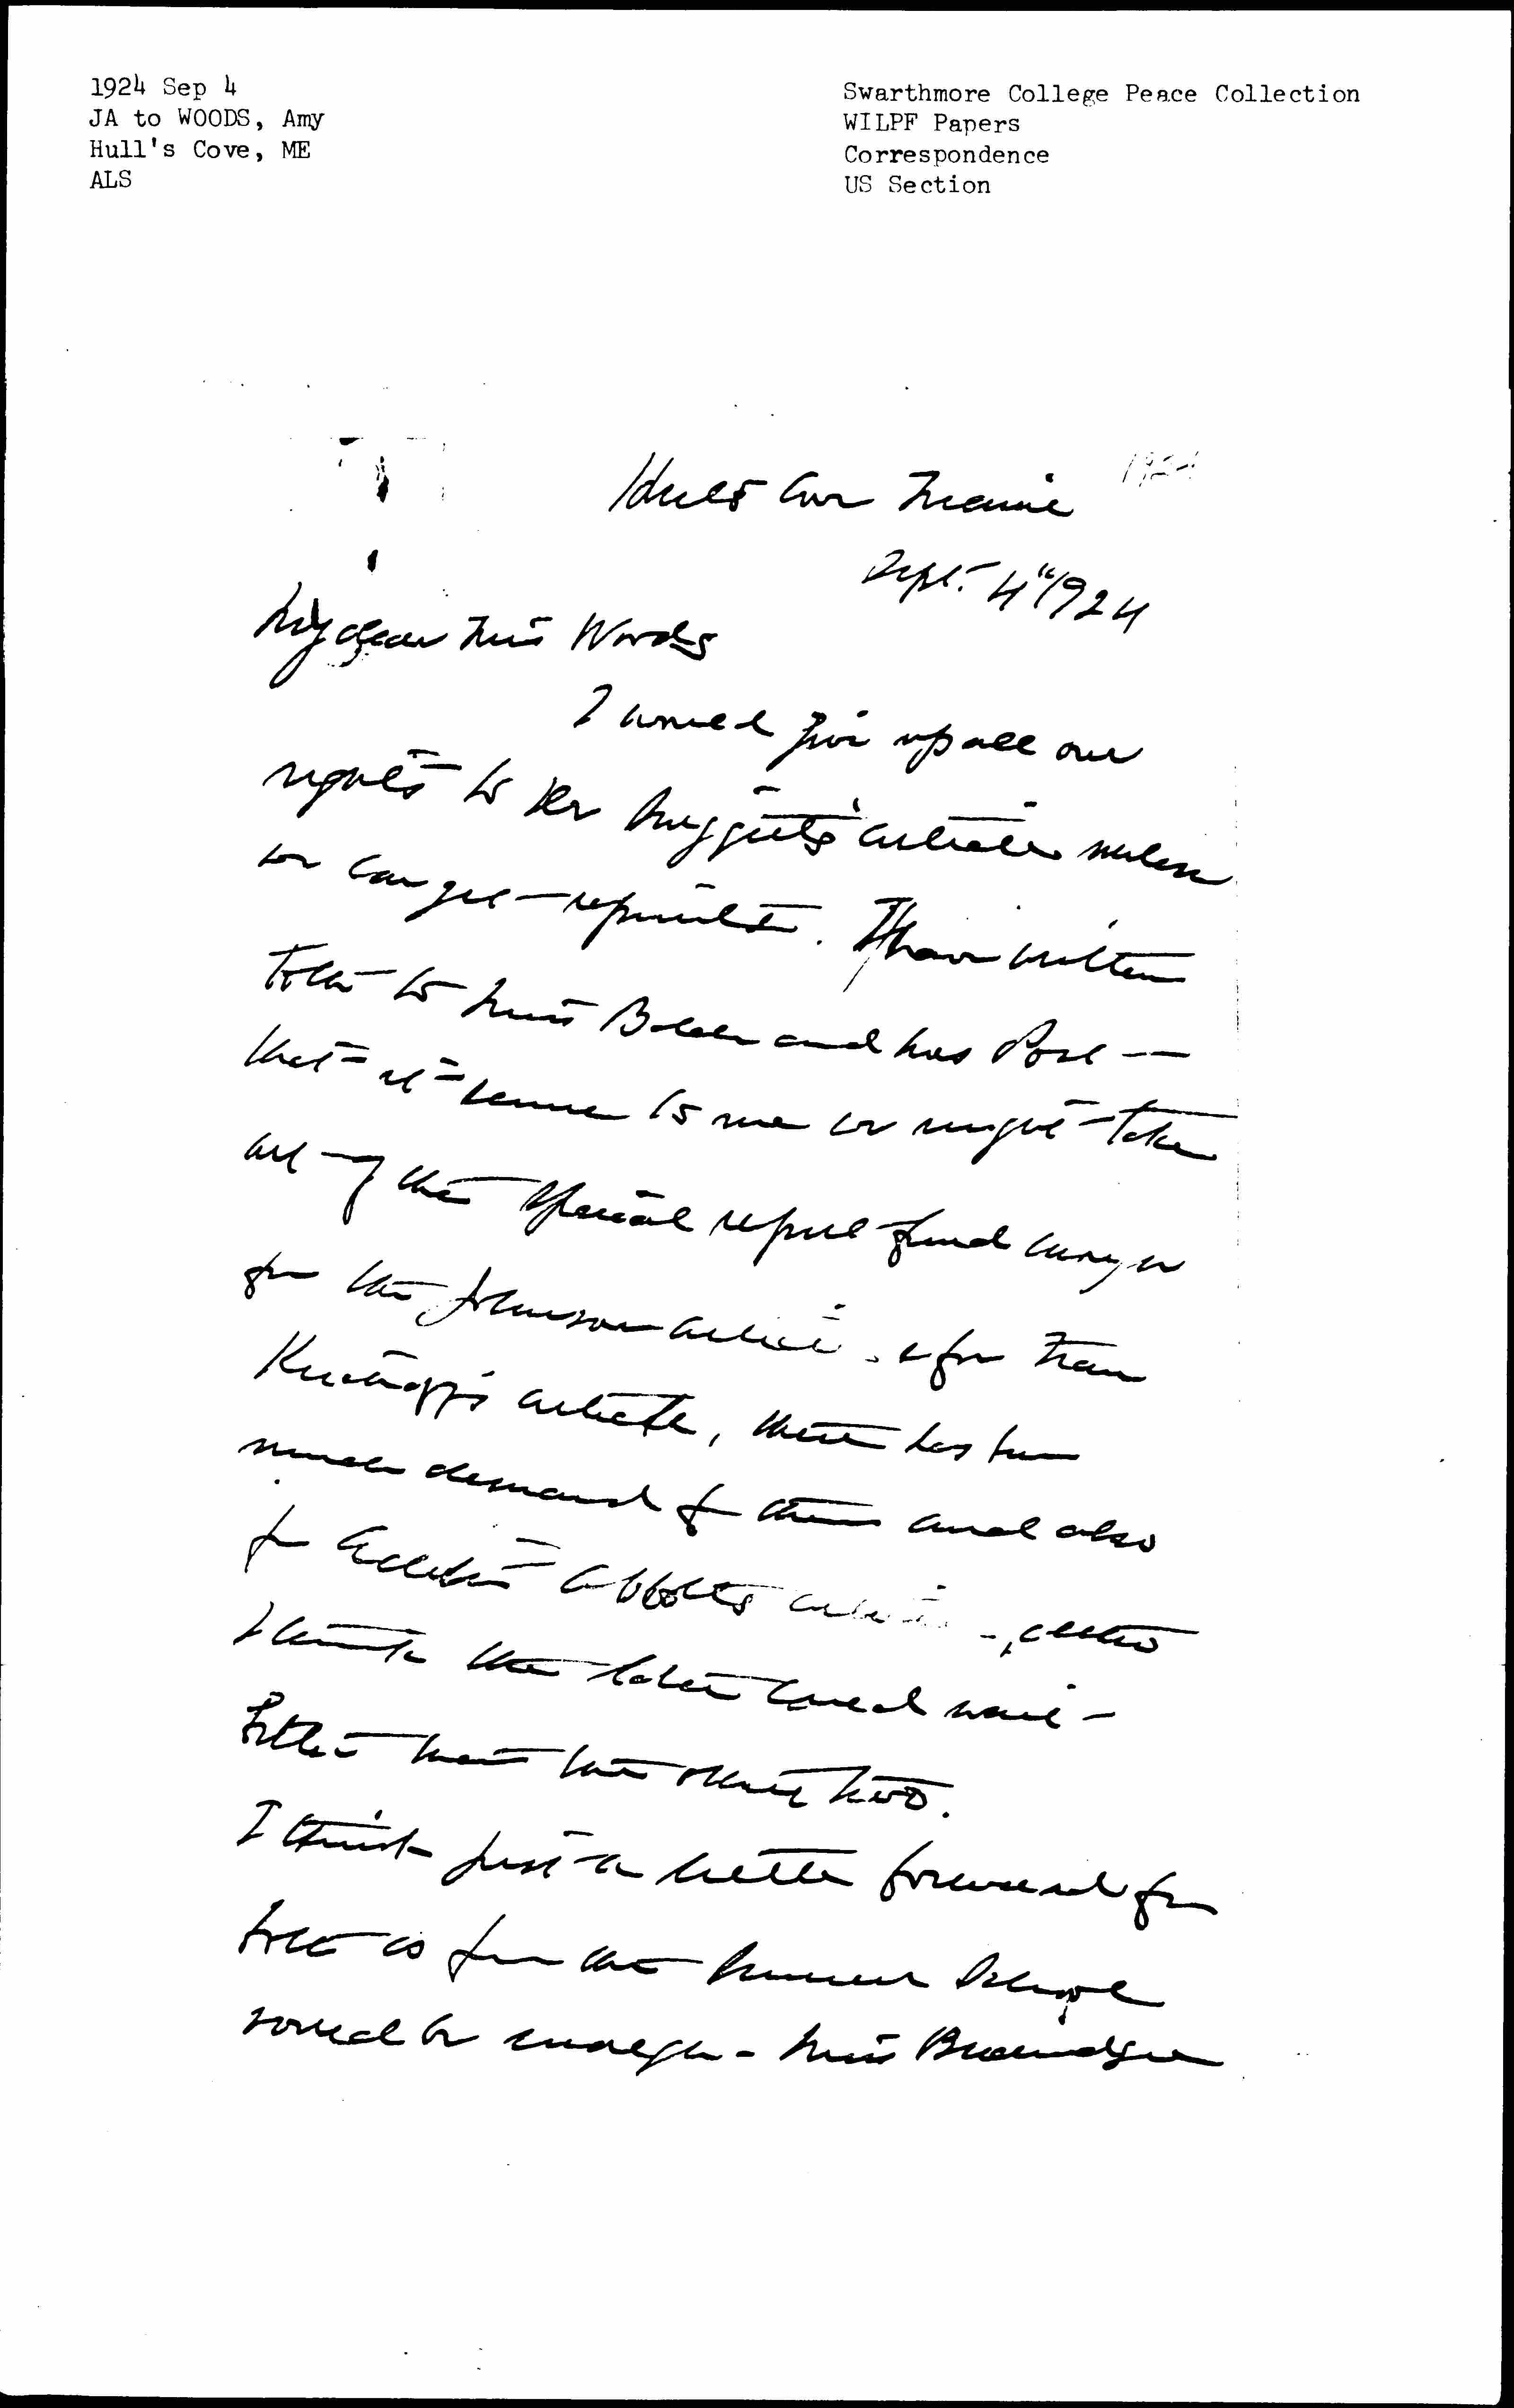 1924 Sep 4
JA to WOODS, Amy
Hull's Cove, ME
ALS
Swarthmore College Peace Collection
WILPF Papers
Correspondence
US Section
1924
Hulls Cove Maine
Sept. 4" 1924
My dear Miss Woods
I would give up all our
rights to articles unless
we can get reprints. I have written
both to Miss Balch and Mrs Post —
that it seems to me we might take
out of the special report fund money
for the Johnson article, & for Frau
article, there has been
much demand for them and also
for Abbott's article, altho
I think the latter could wait
better than the other two.
I think just a little foreword for
both as for the Summer School
would be enough - Miss